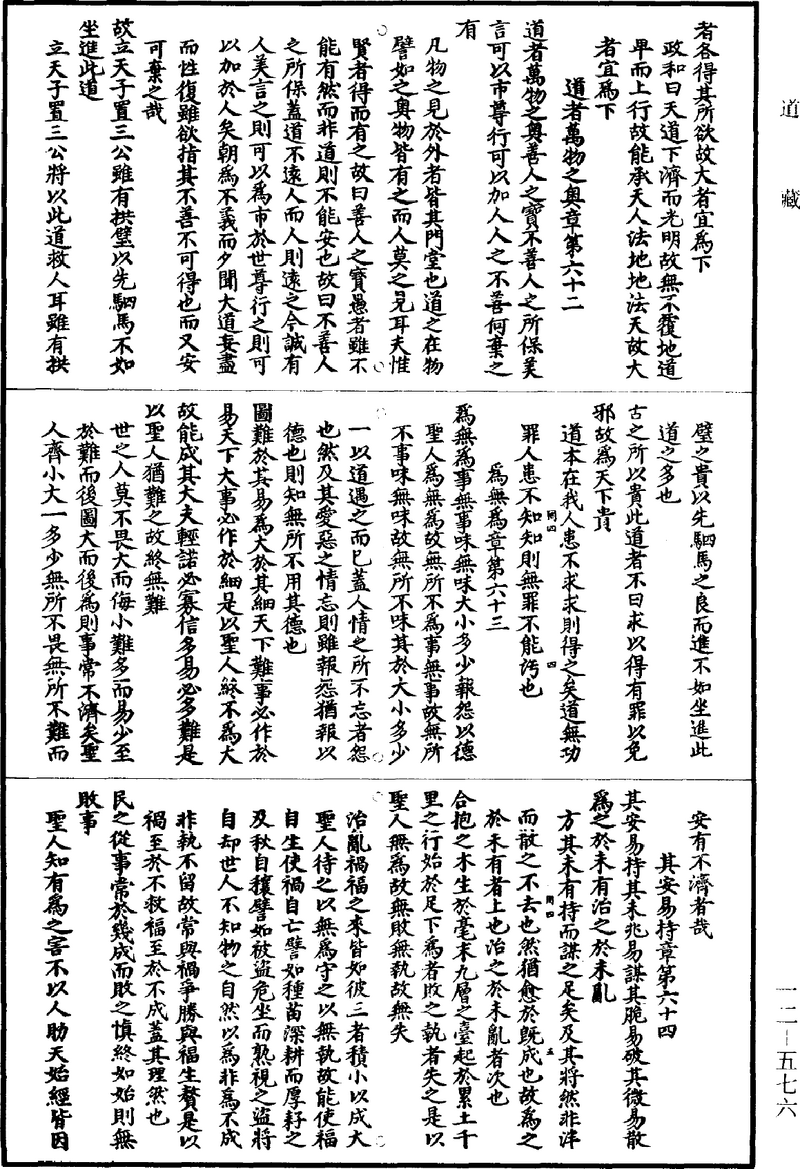 道藏
者各得其所欲故大者宜為下
政和曰天道下濟而光明故無不覆地道
卑而上行故能承天人法地地法天故大
者宜為下
道者萬物之奧章第六十二
道者萬物之奧善人之寶不善人之所保美
言可以市尊行可以加人人之不善何棄之
有
凡物之見於外者皆其門堂也道之在物
譬如之奧物皆有之而人莫之見耳夫惟
賢者得而有之故曰善人之寶愚者雖不
能有然而非道則不能安也故曰不善人
之所保蓋道不遠人而人則遠之今誠有
人美言之則可以為市於世尊行之則可
以加於人矣朝為不義而夕聞大道妄盡
而性復雖欲指其不善不可得也而又安
可棄之哉
故立天子置三公雖有拱璧以先駟馬不如
坐進此道
立天子置三公將以此道救人耳雖有拱
璧之貴以先駟馬之良而進不如坐進此
道之多也
古之所以貴此道者不曰求以得有罪以免
邪故為天下貴
道本在我人患不求求則得之矣道無功
罪人患不知知則無罪不能污也
為無為章第六十三
為無為事無事味無味大小多少報怨以德
聖人為無為故無所不為事無事故無所
不事味無味故無所不味其於大小多少
一以道遇之而已蓋人情之所不忘者怨
也然及其愛惡之情忘則雖報怨猶報以
德也則知無所不用其德也
圖難於其易為大於其細天下難事必作於
易天下大事必作於細是以聖人終不為大
故能成其大夫輕諾必寡信多易必多難是
以聖人猶難之故終無難
世之人莫不畏大而侮小難多而易少至
於難而後圖大而後為則事常不濟矣聖
人齊小大一多少無所不畏無所不難而
安有不濟者哉
其安易持章第六十四
其安易持其未兆易謀其脆易破其微易散
為之於未有治之於未亂
方其未有持而謀之足矣及其將然非泮
而散之不去也然猶愈於既成也故為之
於未有者上也治之於未亂者次也
合抱之木生於毫末九層之臺起於累土千
里之行始於足下為者敗之執者失之是以
聖人無為故無敗無執故無失
治亂禍福之來皆如彼三者積小以成大
聖人待之以無為守之以無執故能使福
自生使禍自亡譬如種苗深耕而厚耔之
及秋自穰譬如被盜危坐而熟視之盜將
自却世人不知物之自然以為非為不成
非執不留故常與禍爭勝與福生贅是以
禍至於不救福至於不成蓋其理然也
民之從事常於幾成而敗之慎終如始則無
敗事
聖人知有為之害不以人助天始經皆因
一二－五七六